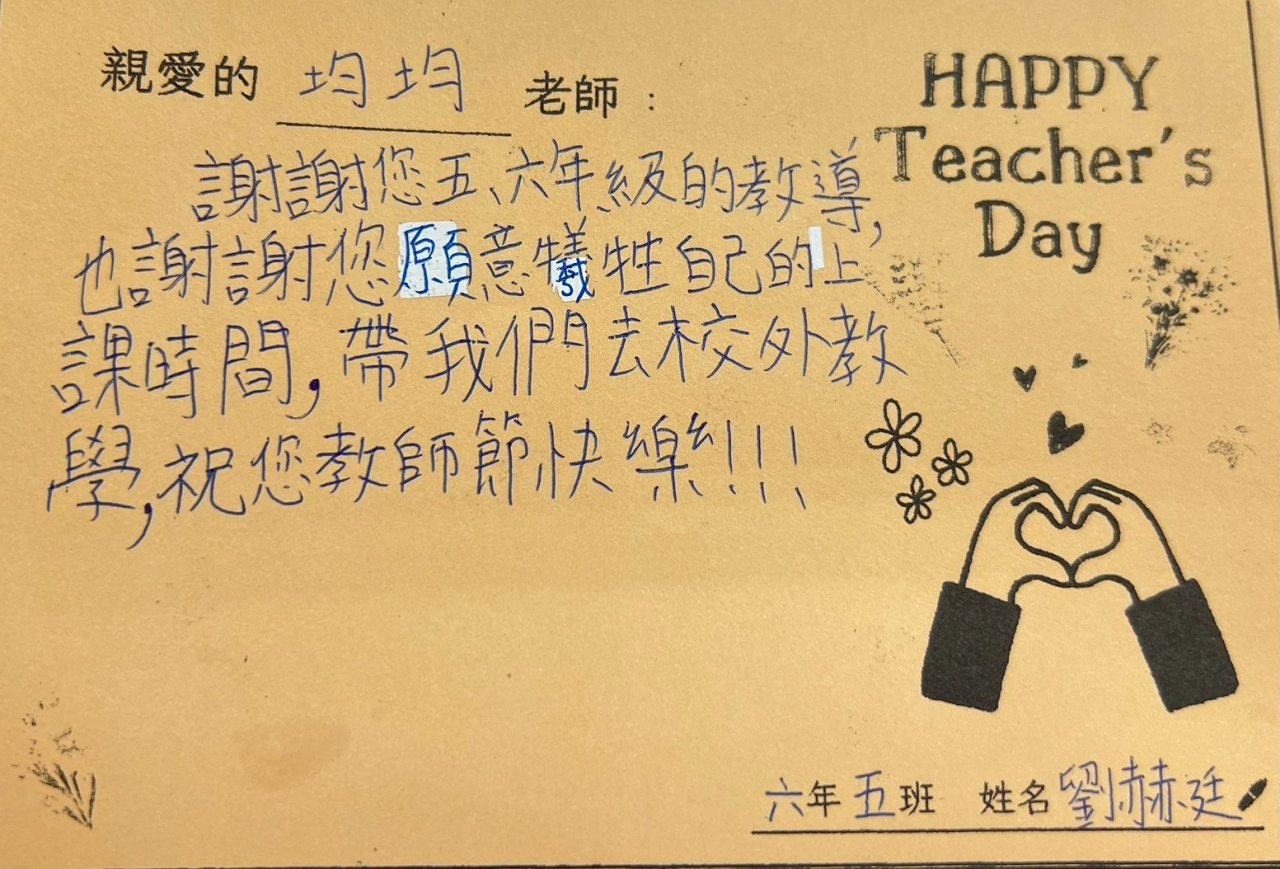 親愛的 均均 老師:
HAPPY
Teacher's
Day
謝謝您五、六年級的教導,
也謝謝您願意犧牲自己的上
課時間,帶我們去校外教
學,祝您教師節快樂!!!
六年五班 姓名 劉赫廷